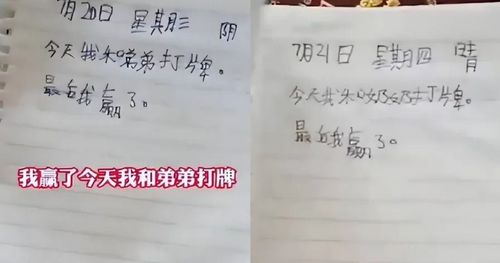 7月20日 星期三 阴
今天我和弟弟打牌。
最后我赢了。
我赢了今天我和弟弟打牌
7月21日 星期四 晴
今天我和奶奶打牌。
最后我赢了。